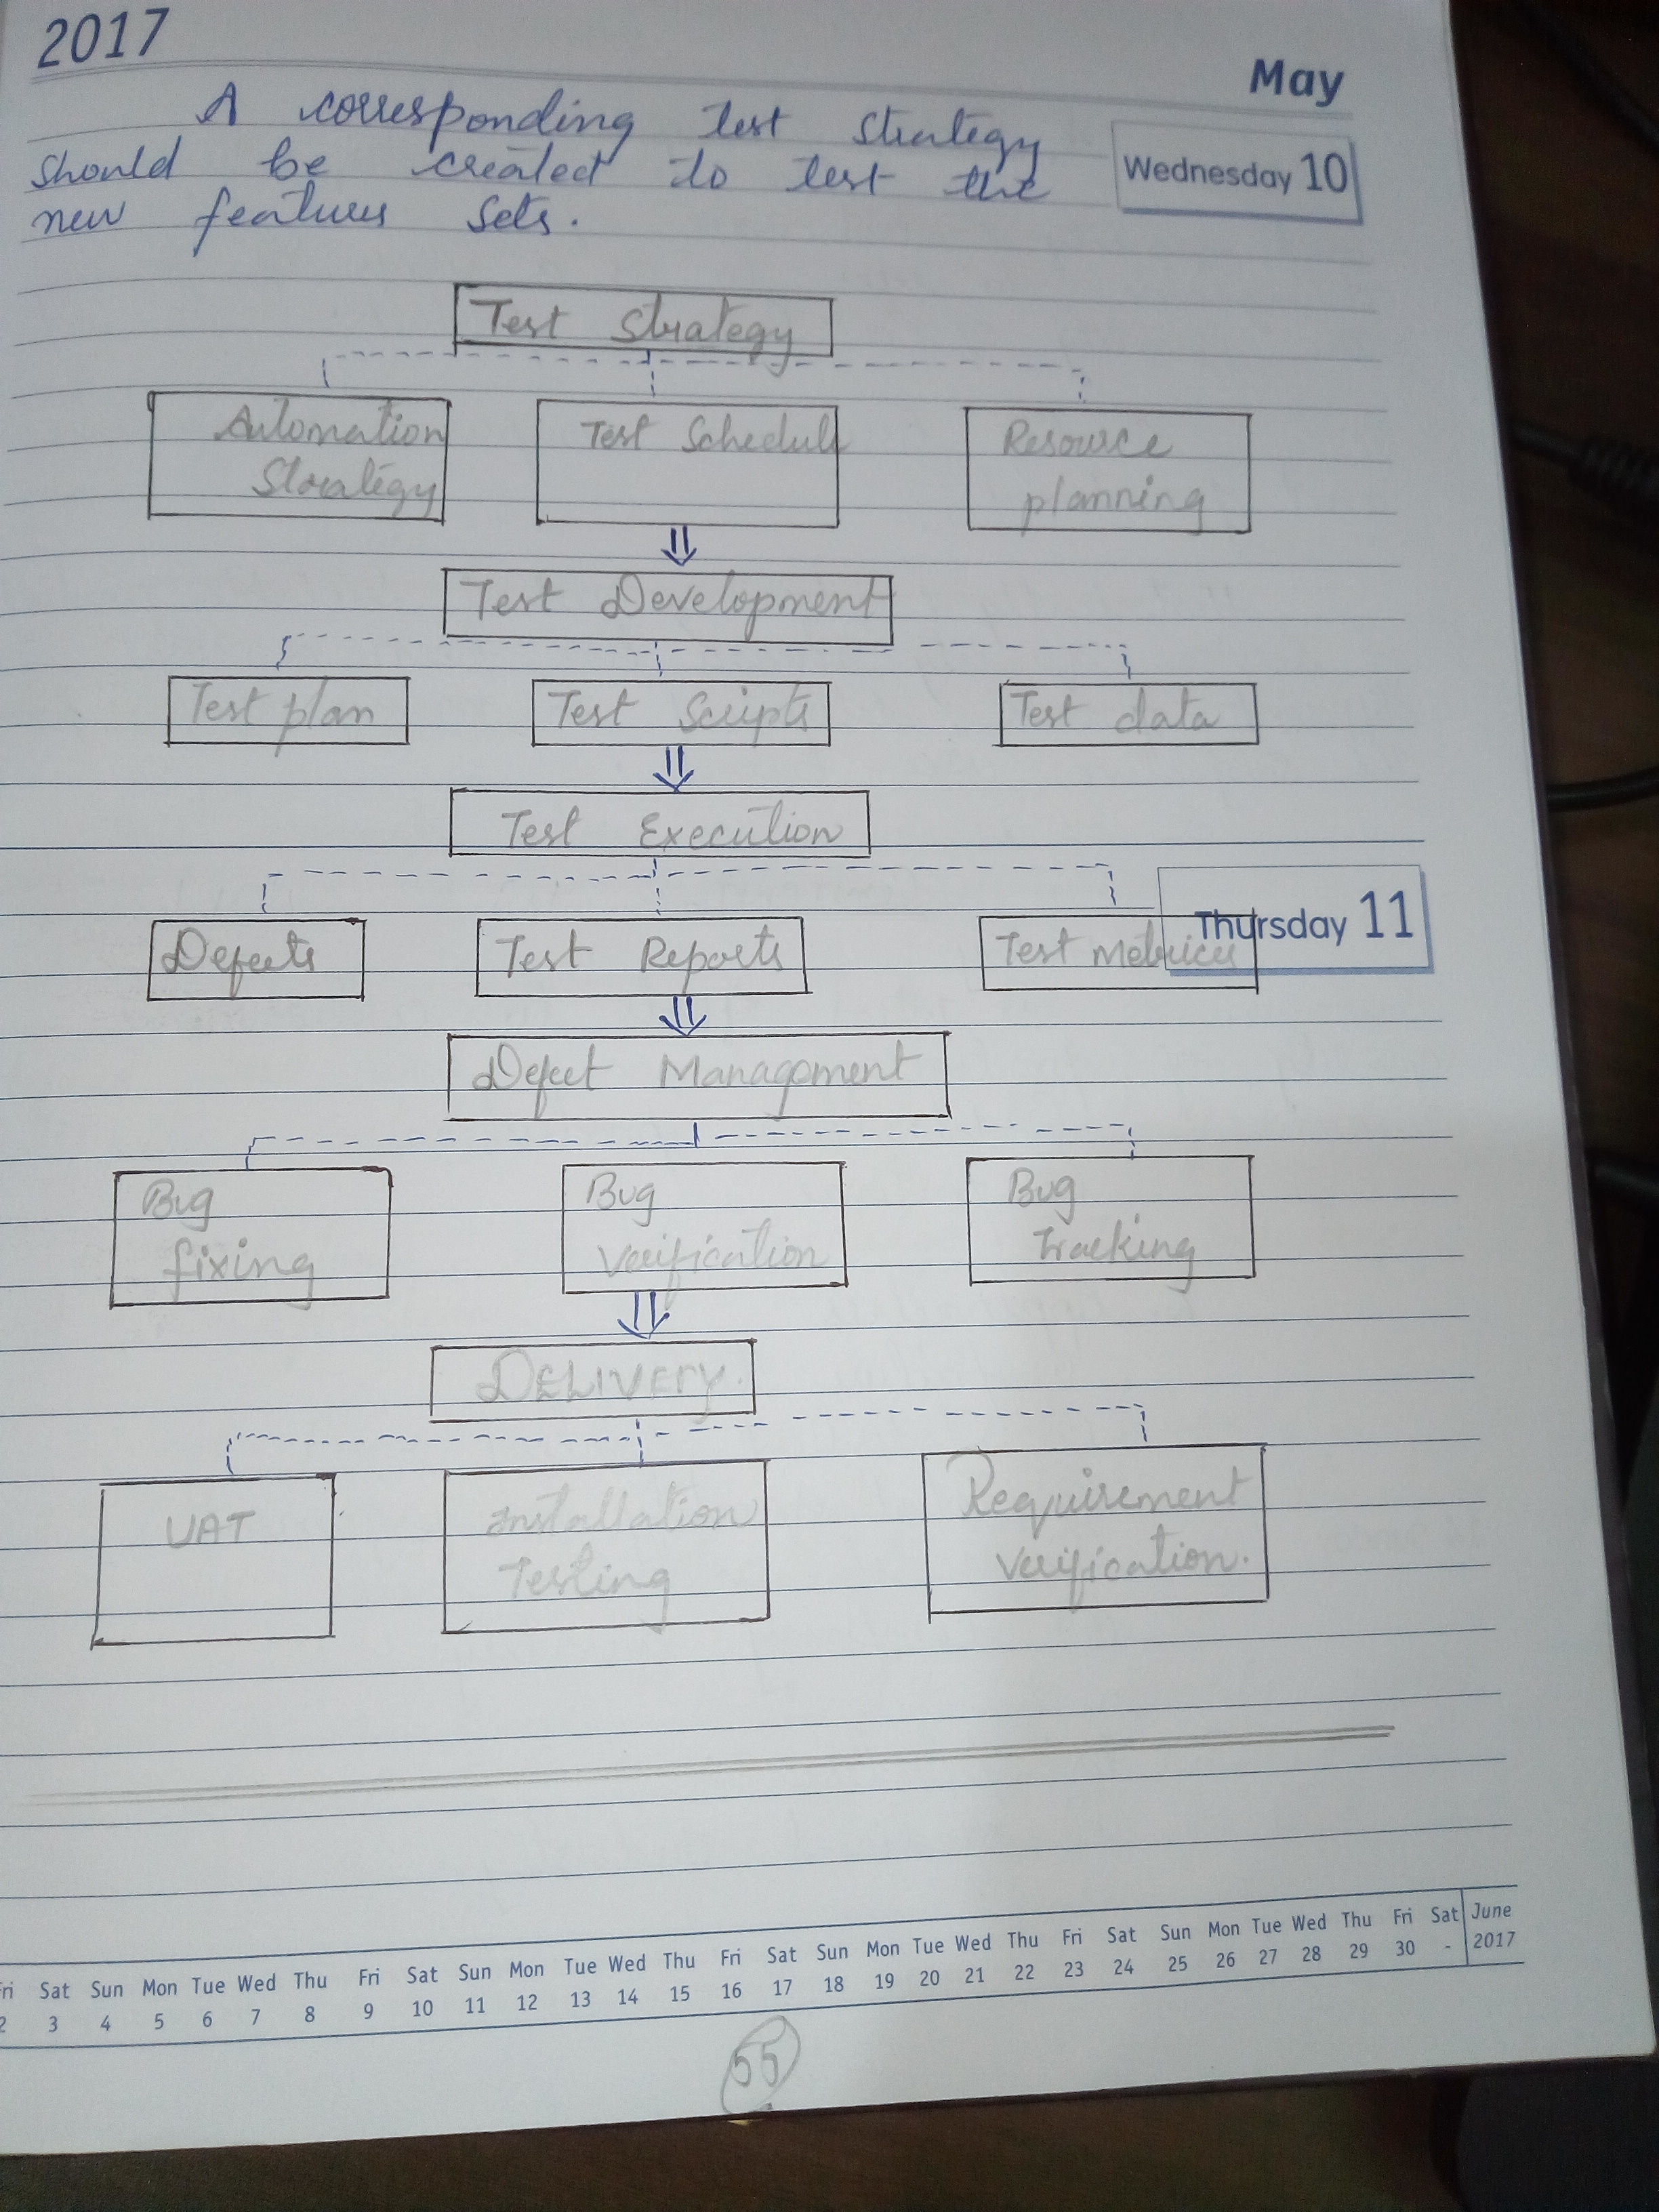 2017
May
A corresponding test strategy
Wednesday 10
should be created to test the
new features sets.
Test Strategy
Automation
Strategy
Test Schedule
Resource
planning
Test Development
Test plan
Test Scripts
Test data
Test Execution
Thursday 11
Defects
Test Reports
Test metrices
Defect Management
Bug
fixing
Bug
verification
Bug
tracking
DELIVERY.
UAT
Installation
Testing
Requirement
verification.
Fri Sat Sun Mon Tue Wed Thu Fri Sat Sun Mon Tue Wed Thu Fri Sat Sun Mon Tue Wed Thu Fri Sat Sun Mon Tue Wed Thu Fri Sat June
2 3 4 5 6 7 8 9 10 11 12 13 14 15 16 17 18 19 20 21 22 23 24 25 26 27 28 29 30 - 2017
55